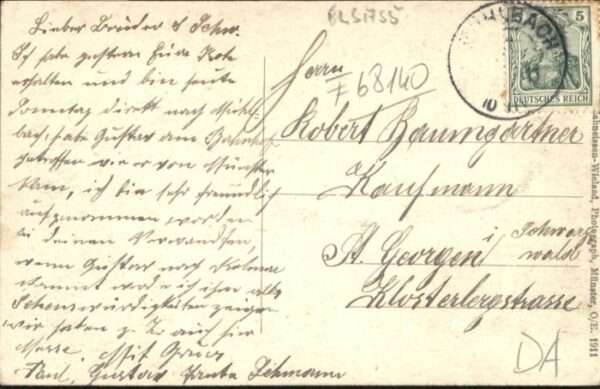 Lieber Bruder & Schw.
Ich habe gestern Eure Karte
erhalten und bin heute
Sonntag direkt nach Mühl-
bach, habe Gustav am Bahnhof
getroffen wie er von Münster
kam, ich bin sehr freundlich
aufgenommen worden
bei deinen Verwandten,
wenn Gustav nach Kolmar
kommt werde ich ihm alle
Sehenswürdigkeiten zeigen
wir haben z. Z. auch hier
Messe. Mit Gruss
Paul, Gustav
ELS1755
F68140
MÜHLBACH
5
DEUTSCHES REICH
Herrn
Robert Baumgartner
Kaufmann
St. Georgen i Schwarz
wald
Klosterbergstrasse
Wieland, Photograph, Münster, O/E. 1911
DA